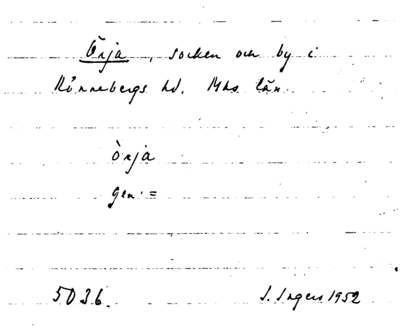 Örja, socken och by i
Rönnebergs hd. Mhs län.
ör̀ja
gen. =
5036. I. Ingers 1952